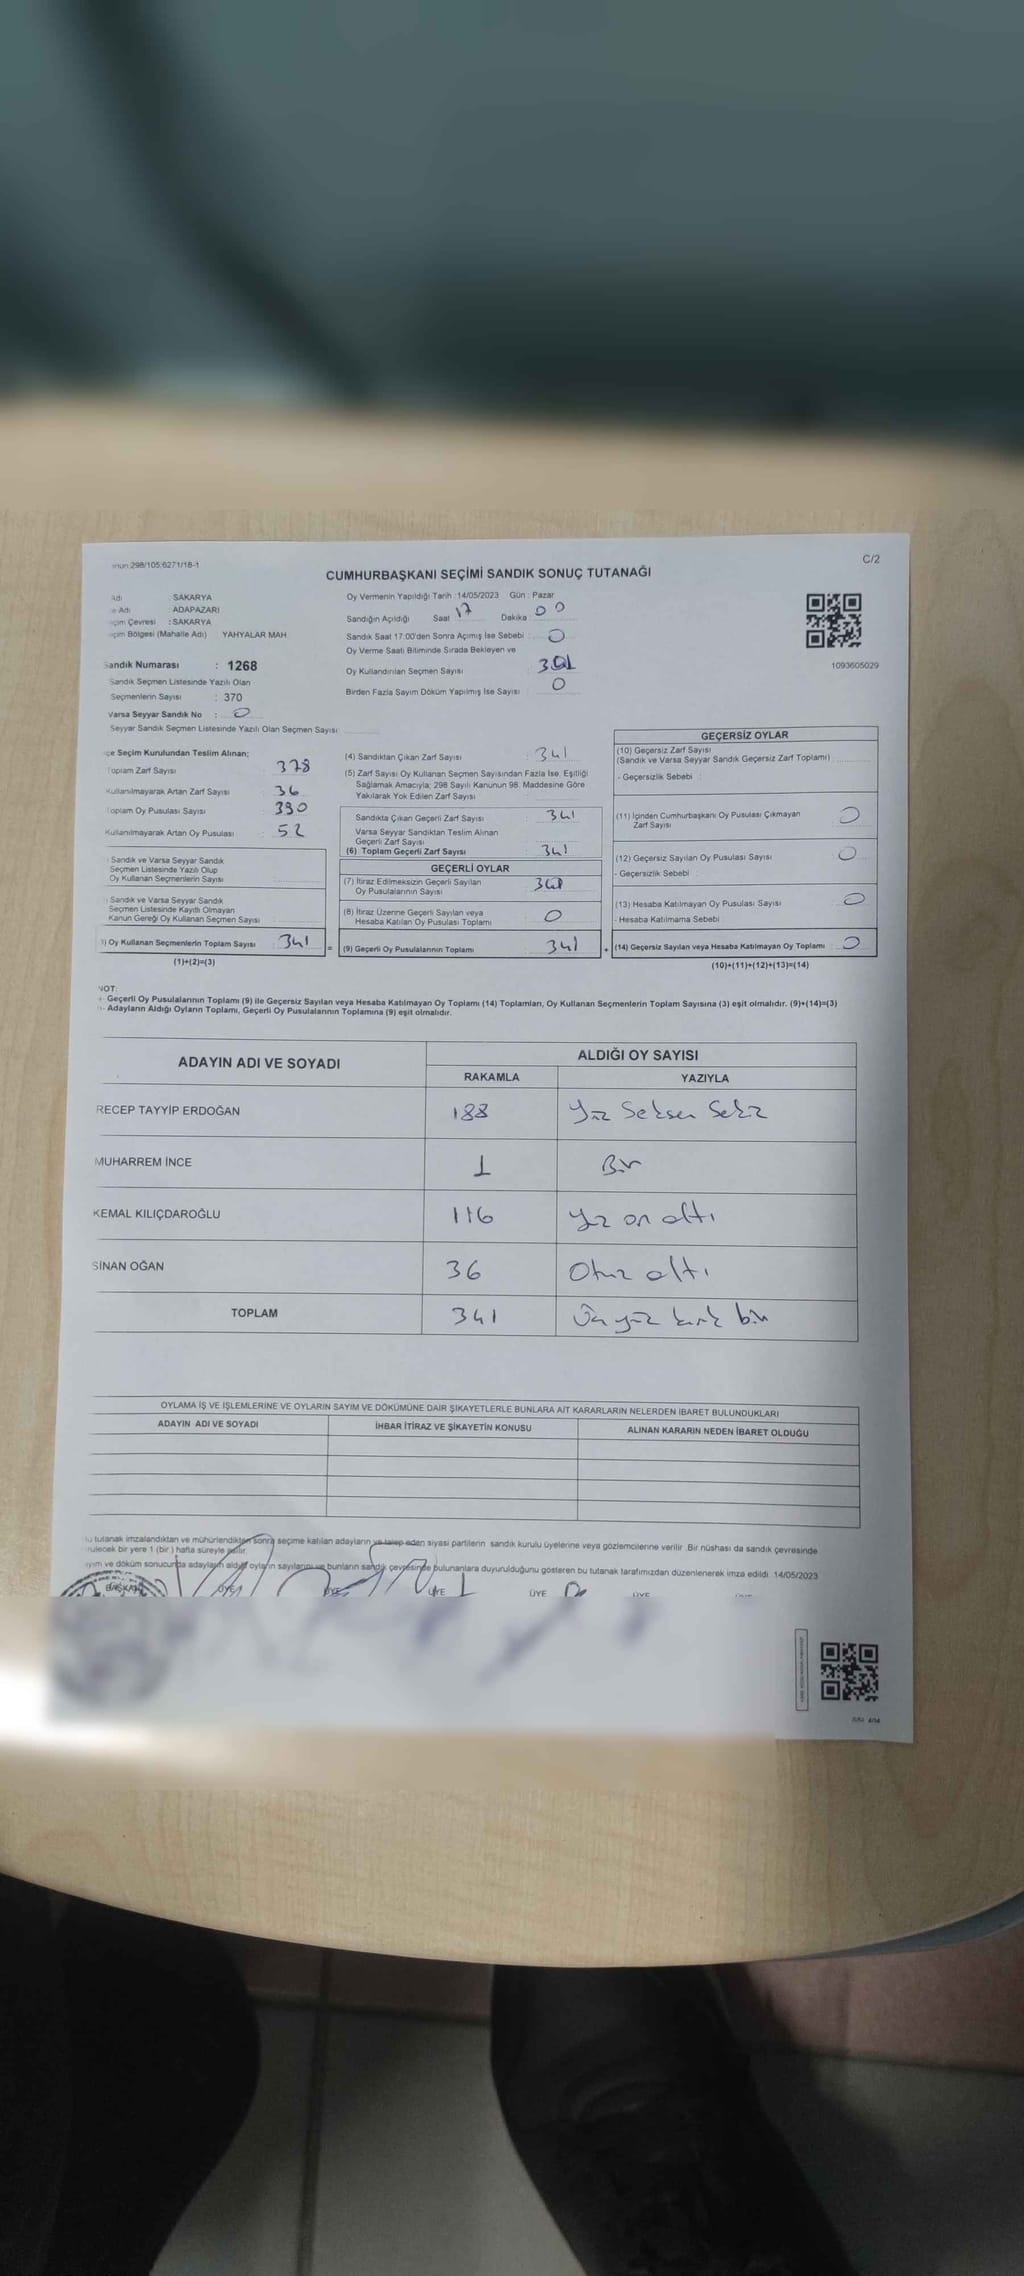 298/105:6271/18-1
C/2
CUMHURBAŞKANI SEÇİMİ SANDIK SONUÇ TUTANAĞI
Adı : SAKARYA
Adı : ADAPAZARI
Çevresi : SAKARYA
Bölgesi (Mahalle Adı) YAHYALAR MAH
Oy Vermenin Yapıldığı Tarih :14/05/2023 Gün : Pazar
Sandığın Açıldığı Saat 17 Dakika 00
Sandık Saat 17:00'den Sonra Açılmış İse Sebebi : 0
Oy Verme Saati Bitiminde Sırada Bekleyen ve
Oy Kullandırılan Seçmen Sayısı
Birden Fazla Sayım Döküm Yapılmış İse Sayısı : 0
1093605029
Sandık Numarası : 1268
Sandık Seçmen Listesinde Yazılı Olan
Seçmenlerin Sayısı : 370
Varsa Seyyar Sandık No : 0
Seyyar Sandık Seçmen Listesinde Yazılı Olan Seçmen Sayısı
Seçim Kurulundan Teslim Alınan;
Toplam Zarf Sayısı : 378
Kullanılmayarak Artan Zarf Sayısı : 36
Toplam Oy Pusulası Sayısı : 390
Kullanılmayarak Artan Oy Pusulası : 52
Sandık ve Varsa Seyyar Sandık
Seçmen Listesinde Yazılı Olup
Oy Kullanan Seçmenlerin Sayısı
Sandık ve Varsa Seyyar Sandık
Seçmen Listesinde Kayıtlı Olmayan
Kanun Gereği Oy Kullanan Seçmen Sayısı
Oy Kullanan Seçmenlerin Toplam Sayısı 341
(1)+(2)=(3)
(4) Sandıktan Çıkan Zarf Sayısı : 341
(5) Zarf Sayısı Oy Kullanan Seçmen Sayısından Fazla İse, Eşitliği
Sağlamak Amacıyla; 298 Sayılı Kanunun 98. Maddesine Göre
Yakılarak Yok Edilen Zarf Sayısı
Sandıkta Çıkan Geçerli Zarf Sayısı : 341
Varsa Seyyar Sandıktan Teslim Alınan
Geçerli Zarf Sayısı
(6) Toplam Geçerli Zarf Sayısı : 341
GEÇERLİ OYLAR
(7) İtiraz Edilmeksizin Geçerli Sayılan
Oy Pusulalarının Sayısı
(8) İtiraz Üzerine Geçerli Sayılan veya
Hesaba Katılan Oy Pusulası Toplamı 0
= (9) Geçerli Oy Pusulalarının Toplamı 341
GEÇERSİZ OYLAR
(10) Geçersiz Zarf Sayısı
(Sandık ve Varsa Seyyar Sandık Geçersiz Zarf Toplamı)
- Geçersizlik Sebebi :
(11) İçinden Cumhurbaşkanı Oy Pusulası Çıkmayan
Zarf Sayısı 0
(12) Geçersiz Sayılan Oy Pusulası Sayısı : 0
- Geçersizlik Sebebi :
(13) Hesaba Katılmayan Oy Pusulası Sayısı : 0
- Hesaba Katılmama Sebebi :
+ (14) Geçersiz Sayılan veya Hesaba Katılmayan Oy Toplamı 0
(10)+(11)+(12)+(13)=(14)
NOT:
- Geçerli Oy Pusulalarının Toplamı (9) ile Geçersiz Sayılan veya Hesaba Katılmayan Oy Toplamı (14) Toplamları, Oy Kullanan Seçmenlerin Toplam Sayısına (3) eşit olmalıdır. (9)+(14)=(3)
- Adayların Aldığı Oyların Toplamı, Geçerli Oy Pusulalarının Toplamına (9) eşit olmalıdır.
ADAYIN ADI VE SOYADI ALDIĞI OY SAYISI
RAKAMLA YAZIYLA
RECEP TAYYİP ERDOĞAN 188 Yüz Seksen Sekiz
MUHARREM İNCE 1 Bir
KEMAL KILIÇDAROĞLU 116 Yüz on altı
SİNAN OĞAN 36 Otuz altı
TOPLAM 341 Üç yüz kırk bir
OYLAMA İŞ VE İŞLEMLERİNE VE OYLARIN SAYIM VE DÖKÜMÜNE DAİR ŞİKAYETLERLE BUNLARA AİT KARARLARIN NELERDEN İBARET BULUNDUKLARI
ADAYIN ADI VE SOYADI İHBAR İTİRAZ VE ŞİKAYETİN KONUSU ALINAN KARARIN NEDEN İBARET OLDUĞU
tutanak imzalandıktan ve mühürlendikten sonra seçime katılan adayların ve talep eden siyasi partilerin sandık kurulu üyelerine veya gözlemcilerine verilir. Bir nüshası da sandık çevresinde
bir yere 1 (bir ) hafta süreyle asılır.
ve döküm sonucunda adayların aldığı oyların sayılarını ve bunların sandık çevresinde bulunanlara duyurulduğunu gösteren bu tutanak tarafımızdan düzenlenerek imza edildi. 14/05/2023
BAŞKAN ÜYE ÜYE ÜYE ÜYE ÜYE